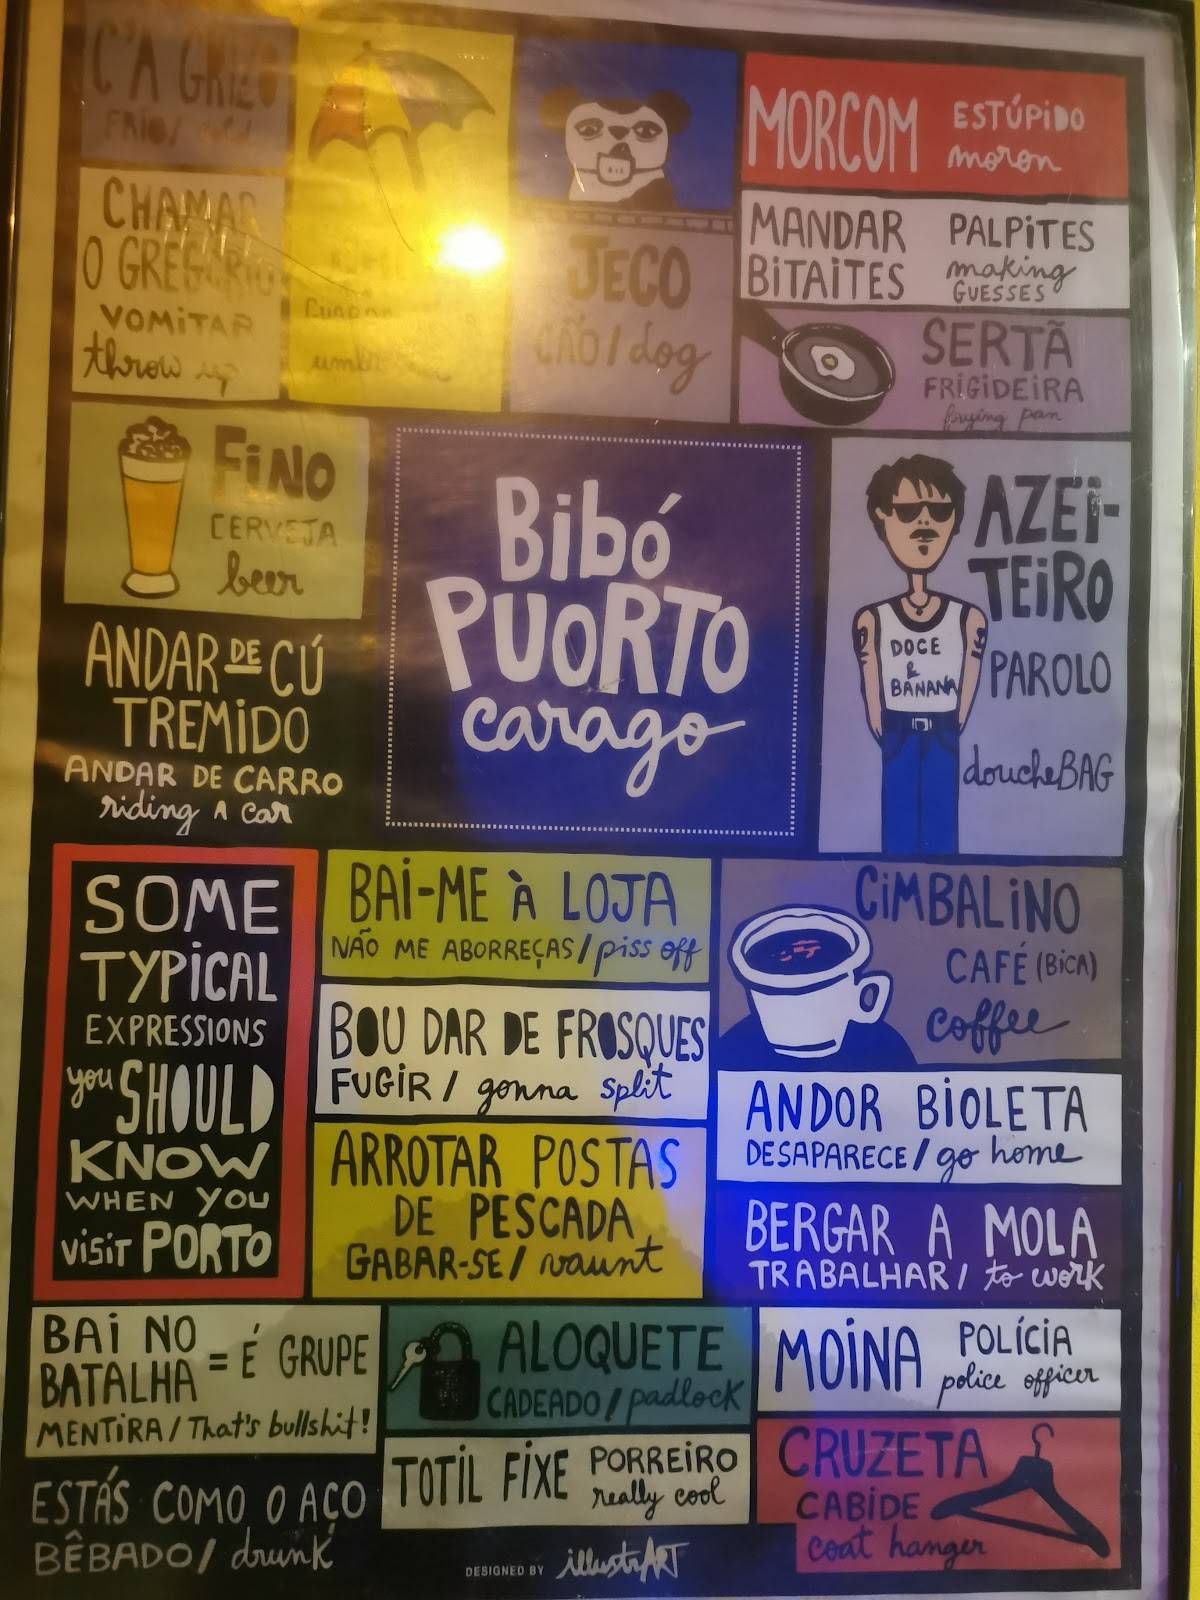 C'A GRIZO
FRIO/
CHAMAR
O GREGÓRIO
VOMITAR
throw up
JECO
CÃO / dog
MORCOM
ESTÚPIDO
moron
MANDAR
BITAITES
PALPITES
making
GUESSES
SERTÃ
FRIGIDEIRA
frying pan
FINO
CERVEJA
beer
Bibó
PUORTO
carago
AZEI-
TEIRO
PAROLO
doucheBAG
DOCE
&
BANANA
ANDAR DE CÚ
TREMIDO
ANDAR DE CARRO
riding A car
SOME
TYPICAL
EXPRESSIONS
you SHOULD
KNOW
WHEN YOU
visit PORTO
BAI-ME À LOJA
NÃO ME ABORREÇAS / piss off
BOU DAR DE FROSQUES
FUGIR / gonna split
ARROTAR POSTAS
DE PESCADA
GABAR-SE / vaunt
CIMBALINO
CAFÉ (BICA)
coffee
ANDOR BIOLETA
DESAPARECE / go home
BERGAR A MOLA
TRABALHAR / to work
BAI NO
BATALHA = É GRUPE
MENTIRA / That's bullshit!
ALOQUETE
CADEADO / padlock
MOINA
POLÍCIA
police officer
TOTIL FIXE
PORREIRO
really cool
CRUZETA
CABIDE
coat hanger
ESTÁS COMO O AÇO
BÊBADO / drunk
DESIGNED BY illustrART